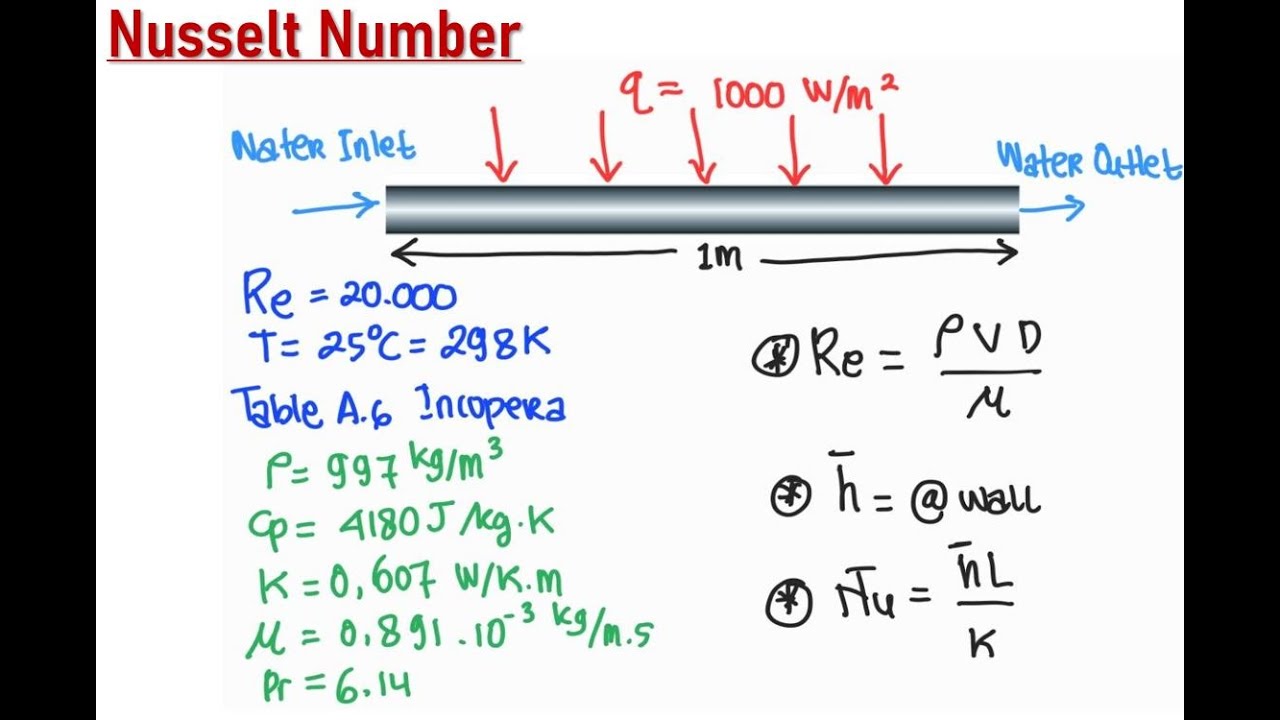 Nusselt Number
q = 1000 W/m²
Water Inlet
Water Outlet
1m
Re = 20.000
T = 25°C = 298K
Table A.6 Incopera
ρ = 997 kg/m³
Cp = 4180 J/kg.K
K = 0,607 W/K.m
μ = 0.891 . 10⁻³ kg/m.s
Pr = 6.14
⊛ Re = ρ V D / μ
⊛ h̄ = @ wall
⊛ N̄u = h̄L / K